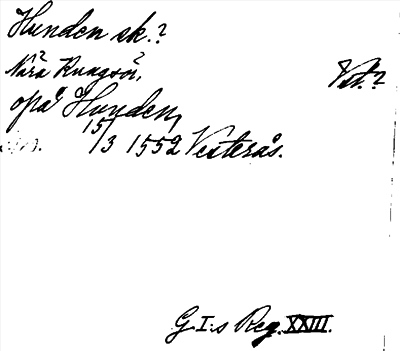 Hunden sk.?
Nära Kungsör,? Vst.?
"opå Hunden,"
15/3 1552 Vesterås.
G. I:s Reg. XXIII.